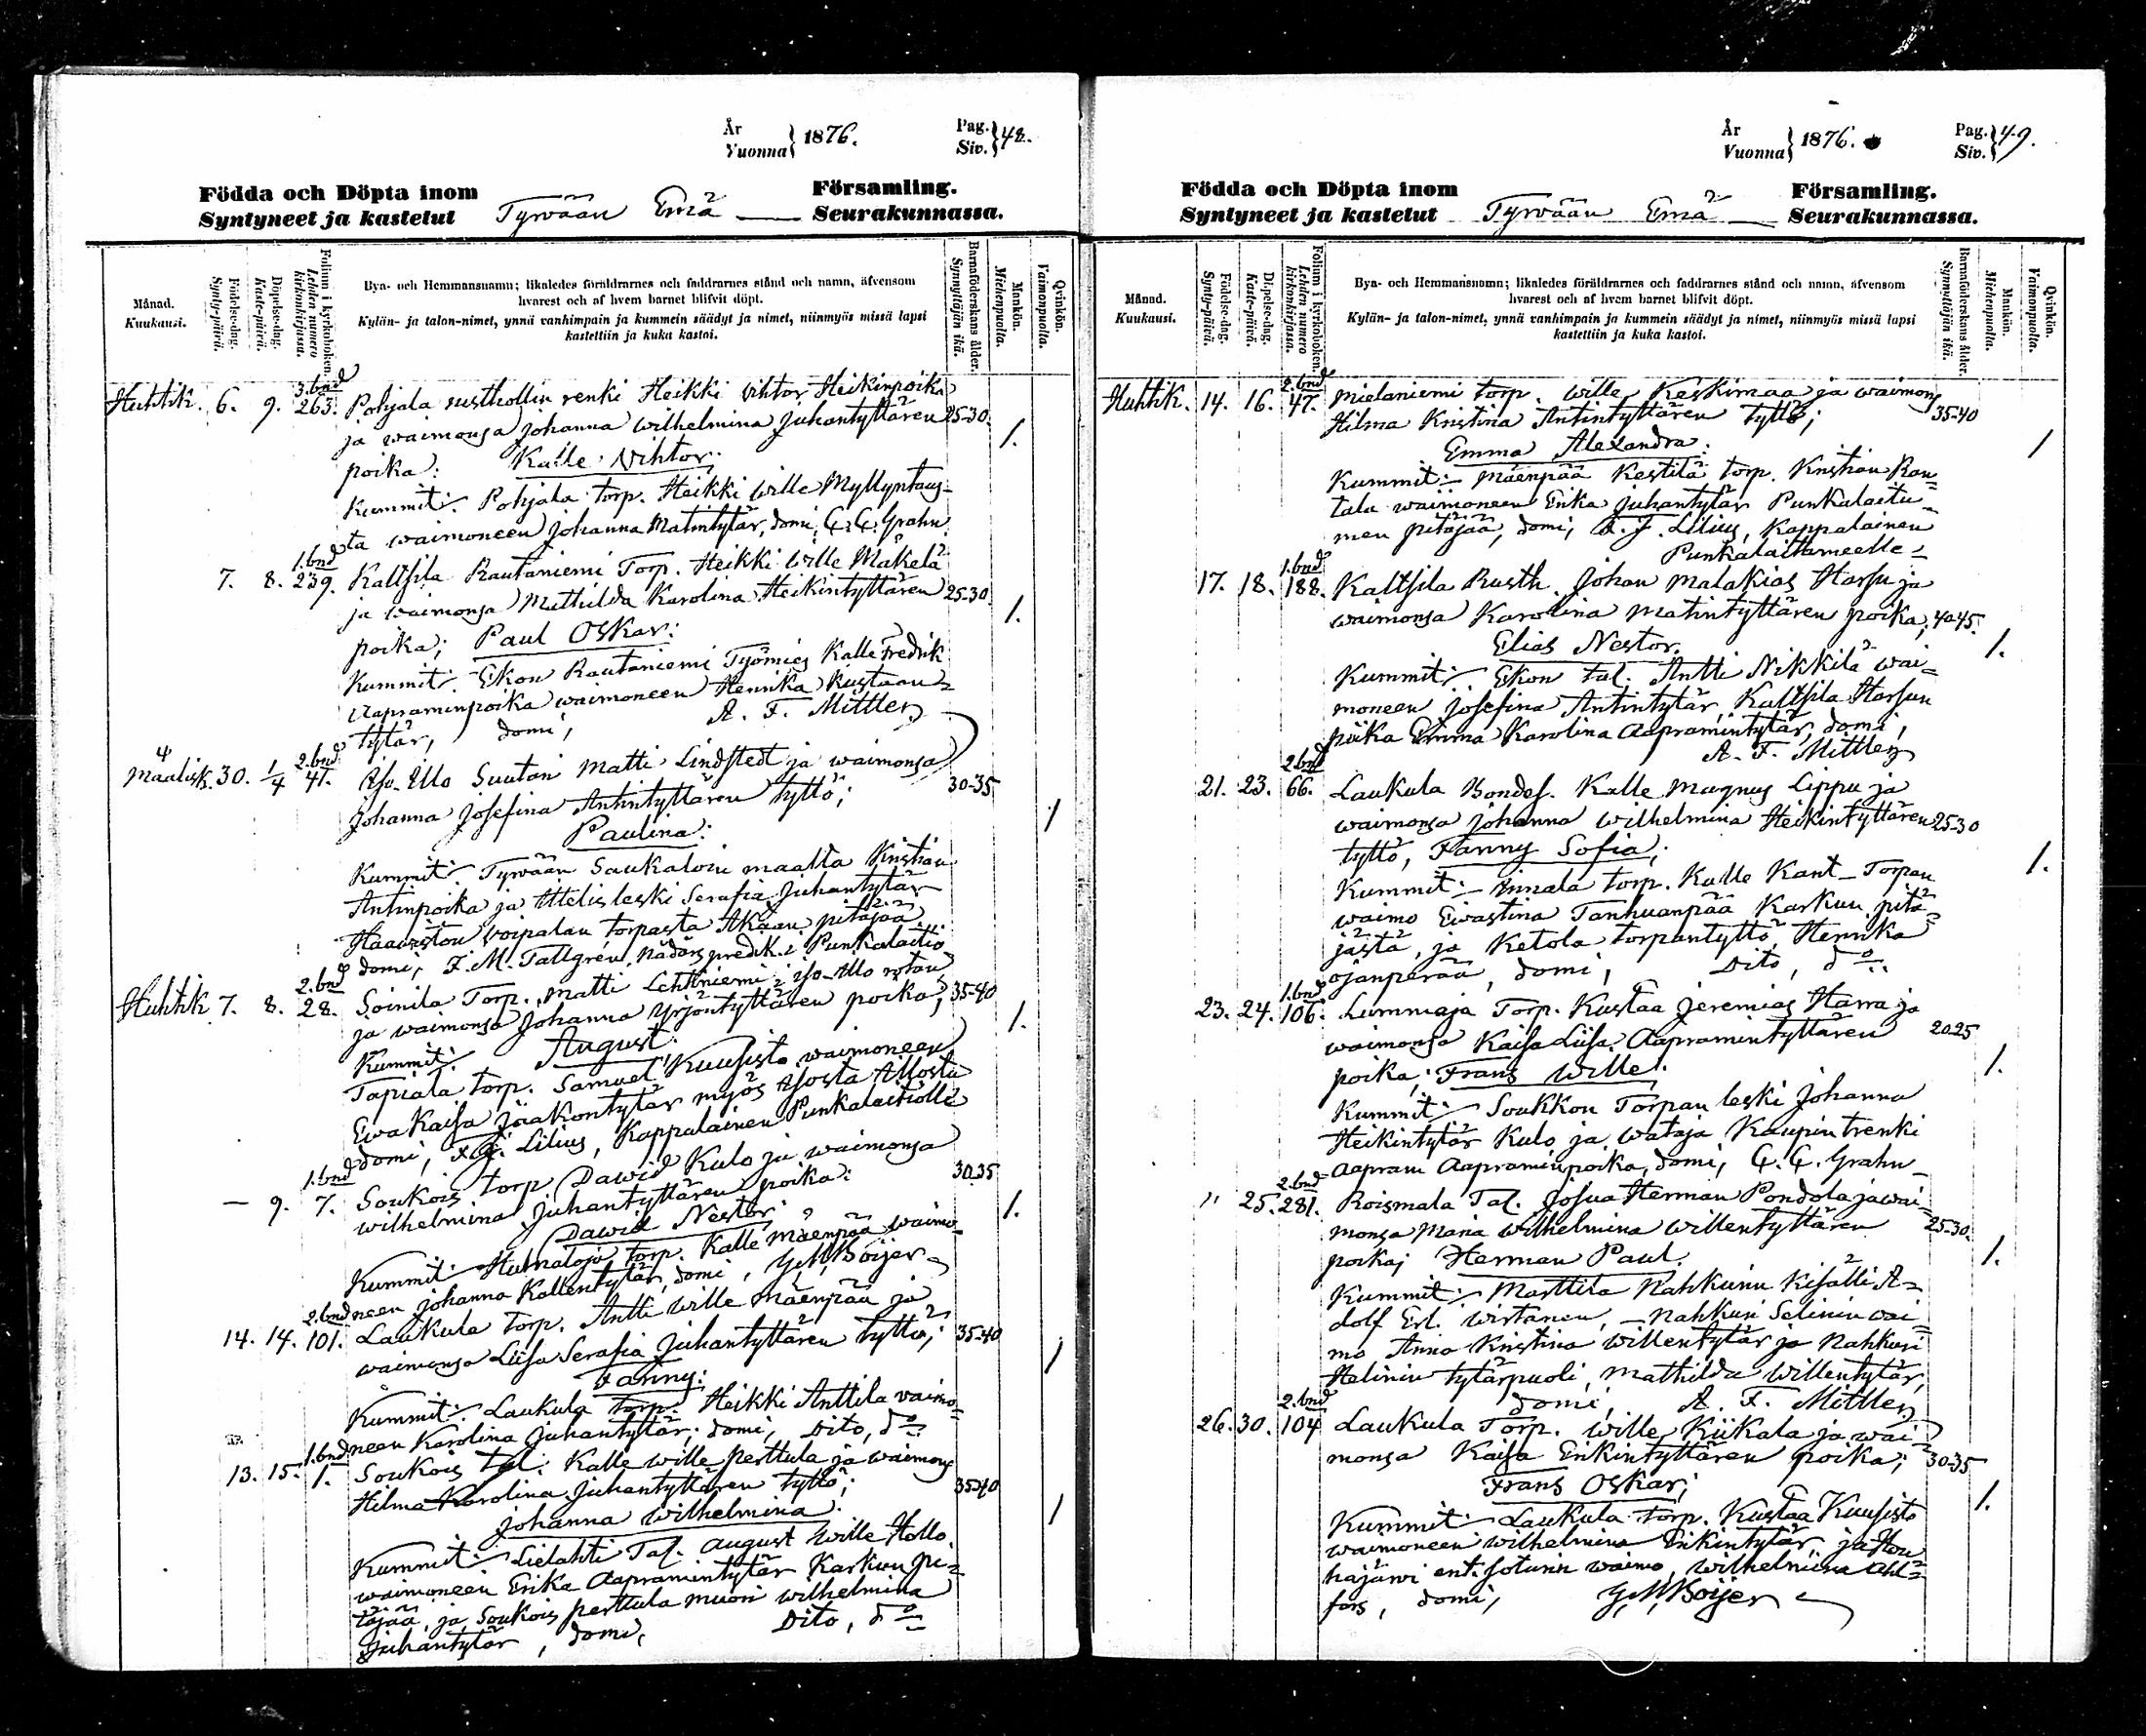 År
Vuonna 1876.
Pag.
Siv. 48.
Födda och Döpta inom Församling.
Syntyneet ja kastetut Tyrvään Emä Seurakunnassa.
Månad.
Kuukausi.
Födelse-dag.
Synty-päivä.
Döpelse-dag.
Kaste-päivä.
Folium i kyrkoboken.
Lehden numero kirkonkirjassa.
Bya- och Hemmansnamn; likaledes föräldrarnes och faddrarnes stånd och namn, äfvensom
hvarest och af hvem barnet blifvit döpt.
Kylän- ja talon-nimet, ynnä vanhimpain ja kummein säädyt ja nimet, niinmyös missä lapsi
kastettiin ja kuka kastoi.
Barnaföderskans ålder.
Synnyttäjän ikä.
Mankön.
Miehenpuolia.
Qvinkön.
Vaimonpuolia.
3. bnd
Huhtik. 6. 9. 263. Pohjala rusthollin renki Heikki Vihtor Heikinpoika
ja waimonsa Johanna Wilhelmina Juhantyttären 25-30.
poika: Kalle Vihtor; 1.
Kummit: Pohjala torp. Heikki Wille Myllyntaus-
ta waimoneen Johanna Matintytär, domi, G. G. Grahn
1. bnd
7. 8. 239. Kaltsila Rautaniemi Torp. Heikki Wille Mäkelä
ja waimonsa Mathilda Karolina Heikintyttären 25-30
poika; Paul Oskar: 1.
Kummit: Ekon Rautaniemi Työmies Kalle Fredrik
Aapraminpoika waimoneen Henrika Kustaan-
tytär, domi, A. F. Mittler
2. bnd
Maalisk. 30. 1/4 41. Iso-Illo Suutari Matti Lindstedt ja waimonsa
Johanna Josefina Antintyttären tyttö; 30-35
Paulina: 1
Kummit: Tyrvään Saukaloin maalta Kristian
Antinpoika ja Ittelisleski Serafia Juhantytär
Haaviston Voipalan torpasta Akaan pitäjää
domi, F. M. Tallgrén, nådårspredik. i Punkalaitio
2. bnd
Huhtik 7. 8. 28. Soinila Torp. Matti Lehtiniemi Iso-Illo
ja waimonsa Johanna Yrjöntyttären poika, 35-40
Kummit: August: 1.
Tapiala torp. Samuel Kuusisto waimoneen
Ewa Kaisa Jaakontytär myös Isosta Illosta
domi, F. J. Lilius, Kappalainen Punkalaitiolle
1. bnd
— 9. 7. Soukois torp Dawid Kulo ja waimonsa
Wilhelmina Juhantyttären poika: 30-35
Dawid Nestor 1.
Kummit: torp. Kalle Mäenpää waimo-
neen Johanna Kallentytär, domi, G. M. Boijer
2. bnd
14. 14. 101. Laukula torp. Antti Wille Mäenpää ja
waimonsa Liisa Serafia Juhantyttären tyttö; 35-40
Fanny: 1
Kummit: Laukula torp. Heikki Anttila waimo-
neen Karolina Juhantytär; domi, Dito, do
1. bnd
13. 15. 1. Soukois tal. Kalle Wille Perttula ja waimons
Hilma Karolina Juhantyttären tyttö; 35-40
Johanna Wilhelmina 1
Kummit: Lielahti Tal. August Wille Hollo
waimoneen Erika Aapramintytär Karkun pi-
täjää, ja Soukois Perttula muori Wilhelmina
Juhantytär, domi, Dito, do
År
Vuonna 1876.
Pag.
Siv. 49.
Födda och Döpta inom Församling.
Syntyneet ja kastetut Tyrvään Emä Seurakunnassa.
Månad.
Kuukausi.
Födelse-dag.
Synty-päivä.
Döpelse-dag.
Kaste-päivä.
Folium i kyrkoboken.
Lehden numero kirkonkirjassa.
Bya- och Hemmansnamn; likaledes föräldrarnes och faddrarnes stånd och namn, äfvensom
hvarest och af hvem barnet blifvit döpt.
Kylän- ja talon-nimet, ynnä vanhimpain ja kummein säädyt ja nimet, niinmyös missä lapsi
kastettiin ja kuka kastoi.
Barnaföderskans ålder.
Synnyttäjän ikä.
Mankön.
Miehenpuolia.
Qvinkön.
Vaimonpuolia.
2. bnd
Huhtik. 14. 16. 47. Mielaniemi torp. Wille Keskimaa ja waimons
Hilma Kristina Antintyttären tyttö; 35-40
Emma Alexandra. 1
Kummit: Mäenpää Kestilä torp. Kristian Ran-
tala waimoneen Erika Juhantytär Punkalaitu-
men pitäjää, domi, F. J. Lilius, Kappalainen
Punkalaitumeelle
1. bnd
17. 18. 188. Kaltsila Rusth. Johan Malakias Harsu ja
waimonsa Karolina Matintyttären poika, 40-45.
Elias Nestor. 1.
Kummit: Ekon tal. Antti Nikkilä wai-
moneen Josefina Antintytär, Kaltsila Harsun
piika Emma Karolina Aapramintytär, domi,
A. F. Mittler
2. bnd
21. 23. 66. Laukula Bondes. Kalle Magnus Lippu ja
waimonsa Johanna Wilhelmina Heikintyttären 25-30
tyttö, Fanny Sofia; 1.
Kummit: torp. Kalle Kant- Torpan
waimo Ewastina Tanhuanpää Karkun pitä-
jästä, ja Ketola torpantyttö Henrika
Ojanperää, domi, Dito, do
1. bnd
23. 24. 106. Lummaja Torp. Kustaa Jeremias Harra ja
waimonsa Kaisa Liisa Aapramintyttären 20-25
poika; Frans Wille; 1.
Kummit: Soukkon Torpan leski Johanna
Heikintytär Kulo ja Wataja Kaupin trenki
Aapram Aapraminpoika, domi, G. G. Grahn
2. bnd
" 25. 281. Roismala Tal. Josua Herman Pondola ja wai-
monsa Maria Wilhelmina Willentyttären 25-30.
poika; Herman Paul. 1.
Kummit: Marttila Nahkurin Kisälli A-
dolf Erl. Wirtanen, Nahkuri Selinin wai-
mo Anna Kristina Willentytär ja Nahkuri
Helinin tytärpuoli Mathilda Willentytär,
domi, A. F. Mittler
2. bnd
26. 30. 104 Laukula Torp. Wille Kiikala ja wai-
monsa Kaisa Erikintyttären poika; 30-35
Frans Oskar; 1.
Kummit: Laukula torp. Kustaa Kuusisto
waimoneen Wilhelmina Erikintytär, ja Hou
hajärwi ent. soturin waimo, Wilhelmina Ahl-
fors, domi, G. M. Boijer